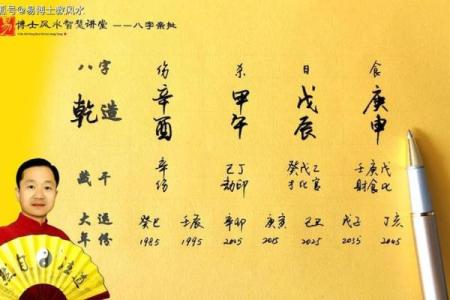 狐号@易博士教风水
易 博士风水智慧讲堂 ——八字亲批
八字 伤 杀 日 食
乾造 辛酉 甲午 戊辰 庚申
藏干 辛 己丁 癸戊乙 壬庚戊
伤 劫印 才比官 财食比
大运 癸巳 壬辰 辛卯 庚寅 己丑 戊子 丁亥
年份 1985 1995 2005 2015 2025 2035 2045
然自法道